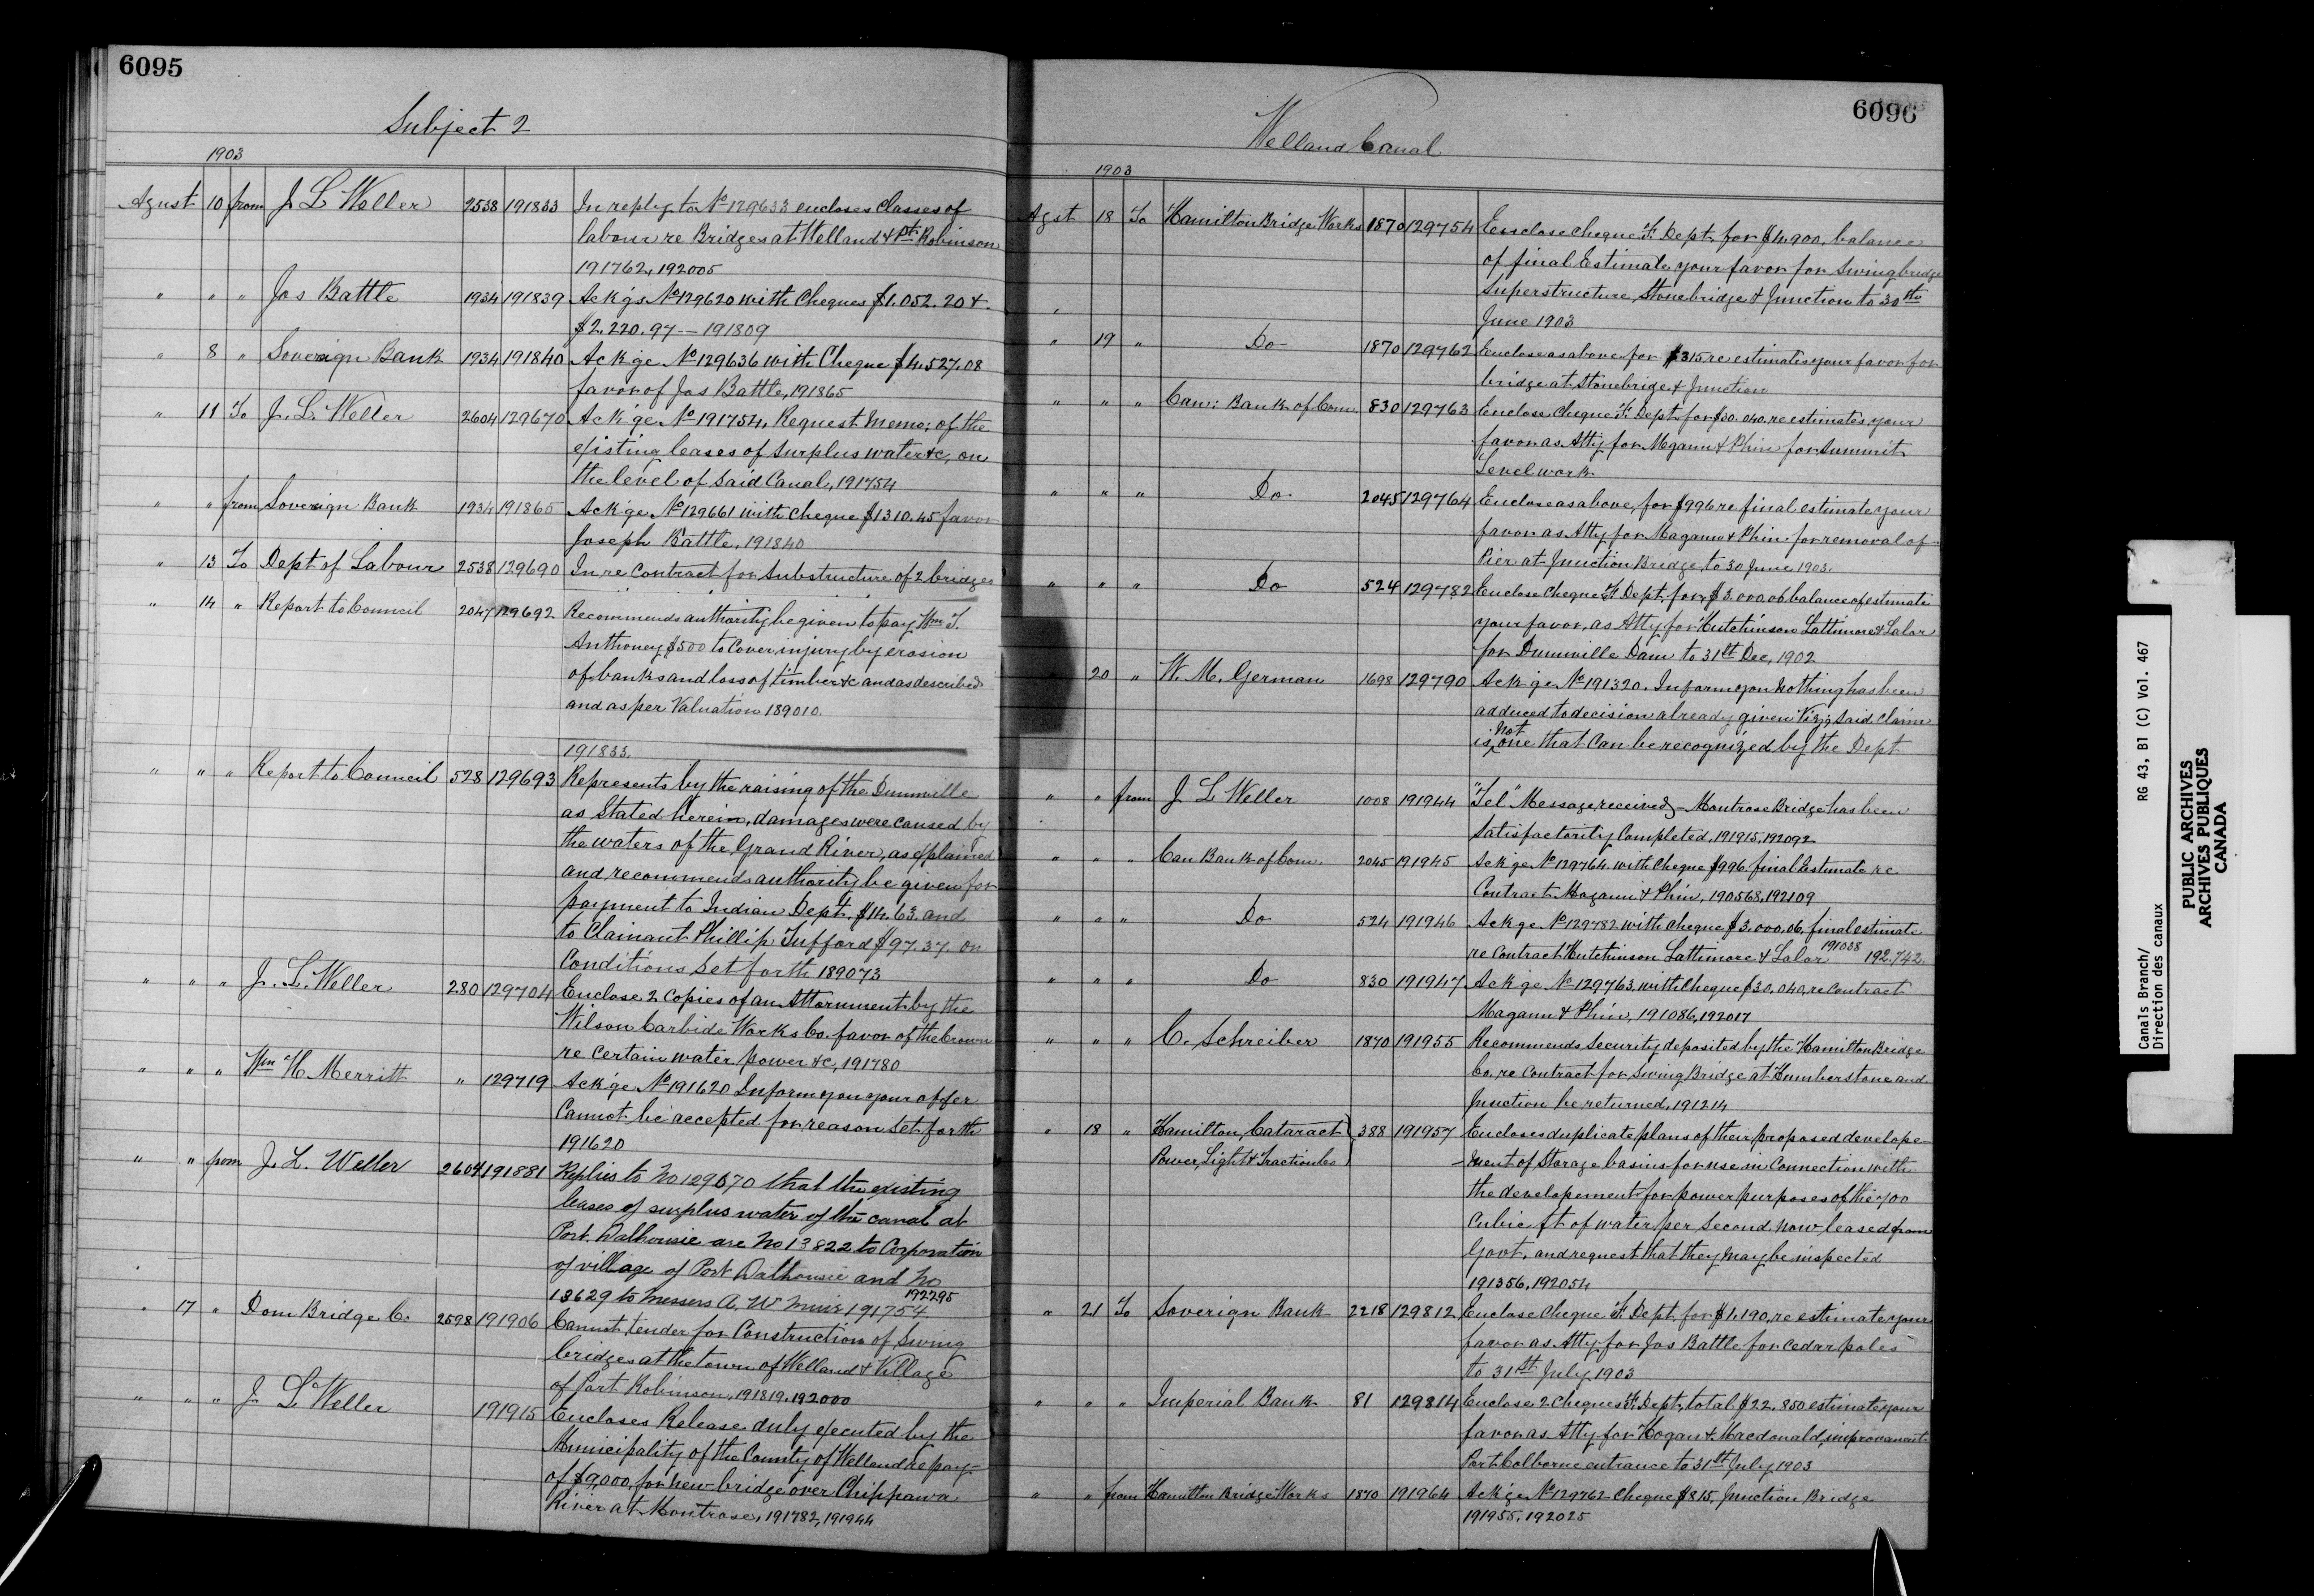 6095
Subject 2
1903
Agust 10 from J L Weller 2538 191833 In reply to No 129633 encloses Classes of
labour re Bridges at Welland & Pt Robinson
191762, 192005
" " " Jas Battle 1934 191839 Ackgs No 129620 with Cheques $1.052.20 &
$2.220.97 — 191809
" 8 " Soverign Bank 1934 191840 Ackge No 129636 with Cheque $4.527.08
favor of Jas Battle, 191865
" 11 To J. L. Weller 2604 129670 Ackge No 191754, Request Memo; of the
existing leases of Surplus water &c, on
the level of said Canal, 191754
" " from Soverign Bank 1934 191865 Ackge No 129661 with cheque $1310.45 favor
Joseph Battle, 191840
" 13 To Dept of Labour 2538 129690 In re Contract for Substructure of 2 bridges
" 14 " Report to Council 2047 129692 Recommends authority be given to pay Wm T.
Anthoney $500 to Cover injury by erosion
of banks and loss of timber &c and as described
and as per Valuation 189010.
191833.
" " " Report to Council 528 129693 Represents by the raising of the Dunnville
as Stated herein, damages were caused by
the waters of the Grand River, as explained
and recommends authority be given for
payment to Indian Dept. $14.63 and
to Claimant Phillip Tufford $97.37 on
Conditions set forth 189073
" " " J. L. Weller 280 129704 Enclose 2 Copies of an Attornment by the
Wilson Carbide Works Co. favor of the Crown
re Certain water power &c, 191780
" " " Wm H. Merritt " 129719 Ackge No 191620 Inform you your offer
Cannot be accepted for reason Set forth
191620
" " from J. L. Weller 2604 191881 Replies to No 129670 that the existing
leases of surplus water of the canal at
Port Dalhousie are No 13822 to Corporation
of village of Port Dalhousie and No
13629 to Messers A. W Muir 191754 192295
" 17 " Dom Bridge Co 2598 191906 Cannot tender for Construction of Swing
bridges at the town of Welland & Village
of Port Robinson, 191819, 192000
" " " J L Weller 191915 Encloses Release duly executed by the
Municipality of the County of Welland re pay-
of $9,000, for new bridge over Chippawa
River at Montrose, 191782, 191944
6096
Welland Canal
1903
Agst 18 To Hamilton Bridge Works 1870 129754 Ensclose cheque F. Dept. for $4.900, balance
of final Estimate your favor for Swing bridge
Superstructure, Stonebridge & Junction to 30th
June 1903
" 19 " Do 1870 129762 Enclose as above for $315 re estimates your favor for
bridge at Stonebrige & Junction
" " " Can: Bank of Com. 830 129763 Enclose Cheque F. Dept. for $30.040, re estimates your
favor as Atty for Magann & Phin for Summit
Level work
" " " Do 2045 129764 Enclose as above, for $996 re final estimate your
favor as Atty for Magann & Phin for removal of
Pier at Junction Bridge to 30 June 1903.
" " " Do 524 129782 Enclose Cheque F. Dept. for $3.000.06 balance of estimate
your favor, as Atty for Hutchinson Lattimore & Lalor
for Dunnville Dam to 31st Dec, 1902
20 " W. M. German 1698 129790 Ackge No 191320. Inform you nothing has been
adduced to decision already given Viz; Said Claim
is not one that Can be recognized by the Dept
" " from J L Weller 1008 191944 "Tel" Message received - Montrose Bridge has been
Satisfactority Completed, 191915, 192092
" " " Can Bank of Com. 2045 191945 Ackge No 129764 with Cheque $996. final Estimate re
Contract Magann & Phin, 190568, 192109
" " " Do 524 191946 Ackge No 129782 with Cheque $3.000.06, final estimate
re Contract Hutchinson Lattimore & Lalor 191038 192.742.
" " " Do 830 191947 Ackge No 129763, with Cheque $30.040, re Contract
Magann & Phin, 191086, 192017
" " " C. Schreiber 1870 191955 Recommends Security deposited by the Hamilton Bridge
Co. re Contract for Swing Bridge at Humberstone and
Junction be returned, 191214
" 18 " Hamilton, Cataract 388 191957 Encloses duplicate plans of their proposed develope-
Power, Light & Traction Co -ment of Storage basins for use in Connection with
the developement for power purposes of the 700
Cubic ft of water per Second, now leased from
Govt. and request that they may be inspected
191356, 192054
" 21 To Soverign Bank 2218 129812 Enclose Cheque F. Dept. for $1,190, re estimate your
favor as Atty. for Jos Battle for Cedar poles
to 31st July 1903
" " " Imperial Bank 81 129814 Enclose 2 Cheques F. Dept, total $22.850 estimate your
favor as Atty for Hogan & Macdonald, improvament
Port Colborne entrance to 31st July 1903
" " from Hamilton Bridge Works 1870 191964 Ackge No 129762 Cheque $815, Junction Bridge
191955, 192025
Canals Branch/
Direction des canaux
RG 43, B1 (C) Vol. 467
PUBLIC ARCHIVES
ARCHIVES PUBLIQUES
CANADA